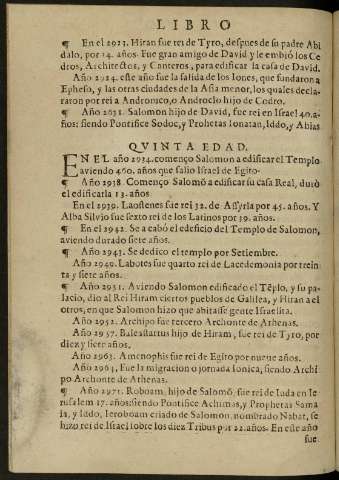 LIBRO
¶ En el 2923. Hiran fue rei de Tyro, despues de su padre Abi
dalo, por 14. años. Fue gran amigo de David y le embiò los Ce
dros, Architectos, y Canteros, para edificar la casa de David.
Año 2924. este año fue la salida de los Iones, que fundaron a
Epheso, y las otras ciudades de la Asia menor, los quales decla-
raron por rei a Andronico, o Androclo hijo de Codro.
¶ Año 2931. Salomon hijo de David, fue rei en Israel 40. a-
ños: siendo Pontifice Sodoc, y Prophetas Ionatan, Iddo, y Abias
QVINTA EDAD.
EN EL año 2934. començo Salomon a edificar el Templo
aviendo 460. años que salio Israel de Egito.
¶ Año 2938. Començo Salomō a edificar su casa Real, durò
el edificarla 13. años
En el 2939. Laostenes fue rei 32. de Assyria por 45. años. Y
Alba Silvio fue sexto rei de los Latinos por 39. años.
¶ En el 2942. Se a cabó el edeficio del Templo de Salomon,
aviendo durado siete años.
¶ Año 2943. Se dedico el templo por Setiembre.
Año 2949. Labotes fue quarto rei de Lacedemonia por trein
ta y siete años.
¶ Año 2951. Aviendo Salomon edificado el Tēplo, y su pa-
lacio, dio al Rei Hiram ciertos pueblos de Galilea, y Hiran a el
otros, en que Salomon hizo que abitasse gente Israelita.
Año 2952. Archipo fue tercero Archonte de Athenas.
Año 2957. Baleastartus hijo de Hiram, fue rei de Tyro, por
diez y siete años.
Año 2963. Amenophis fue rei de Egito por nueue años.
Año 2964. Fue la migracion o jornada Ionica, siendo Archi
po Archonte de Athenas.
¶ Año 2971. Roboam, hijo de Salomō, fue rei de Iuda en Ie
rusalem 17. años: siendo Pontifice Achimas, y Prophetas Sama
ia, y Iddo, Ieroboam criado de Salomon, nombrado Nabat, se
hizo rei de Israel sobre los diez Tribus por 22. años. En este año
fue